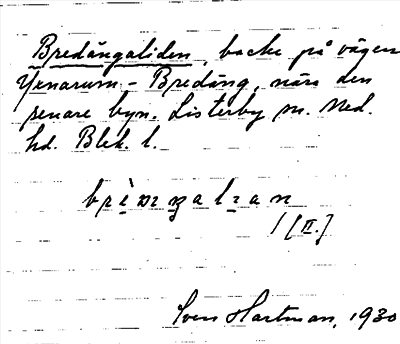 Bredängaliden, backe på vägen
Yxnarum - Bredäng, nära den
senare byn. Listerby sn. Med.
hd. Blek. l.
/ [II.]
Sven Hartman, 1930